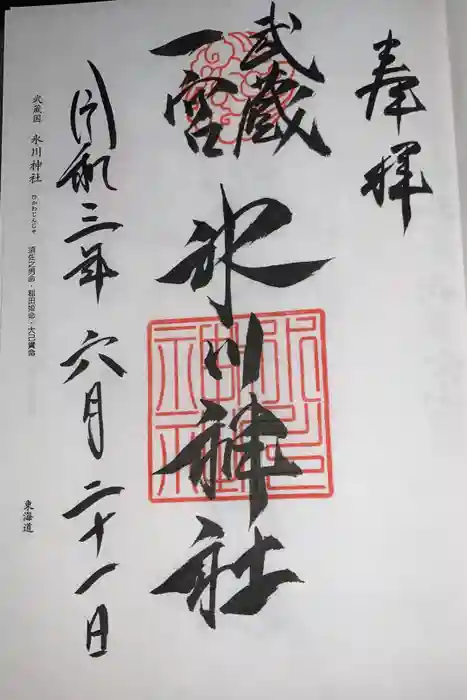 奉拝
武蔵
一宮
氷川神社
令和三年六月二十一日
武蔵国 氷川神社 ひかわじんじゃ 須佐之男命・稲田姫命・大己貴命
東海道